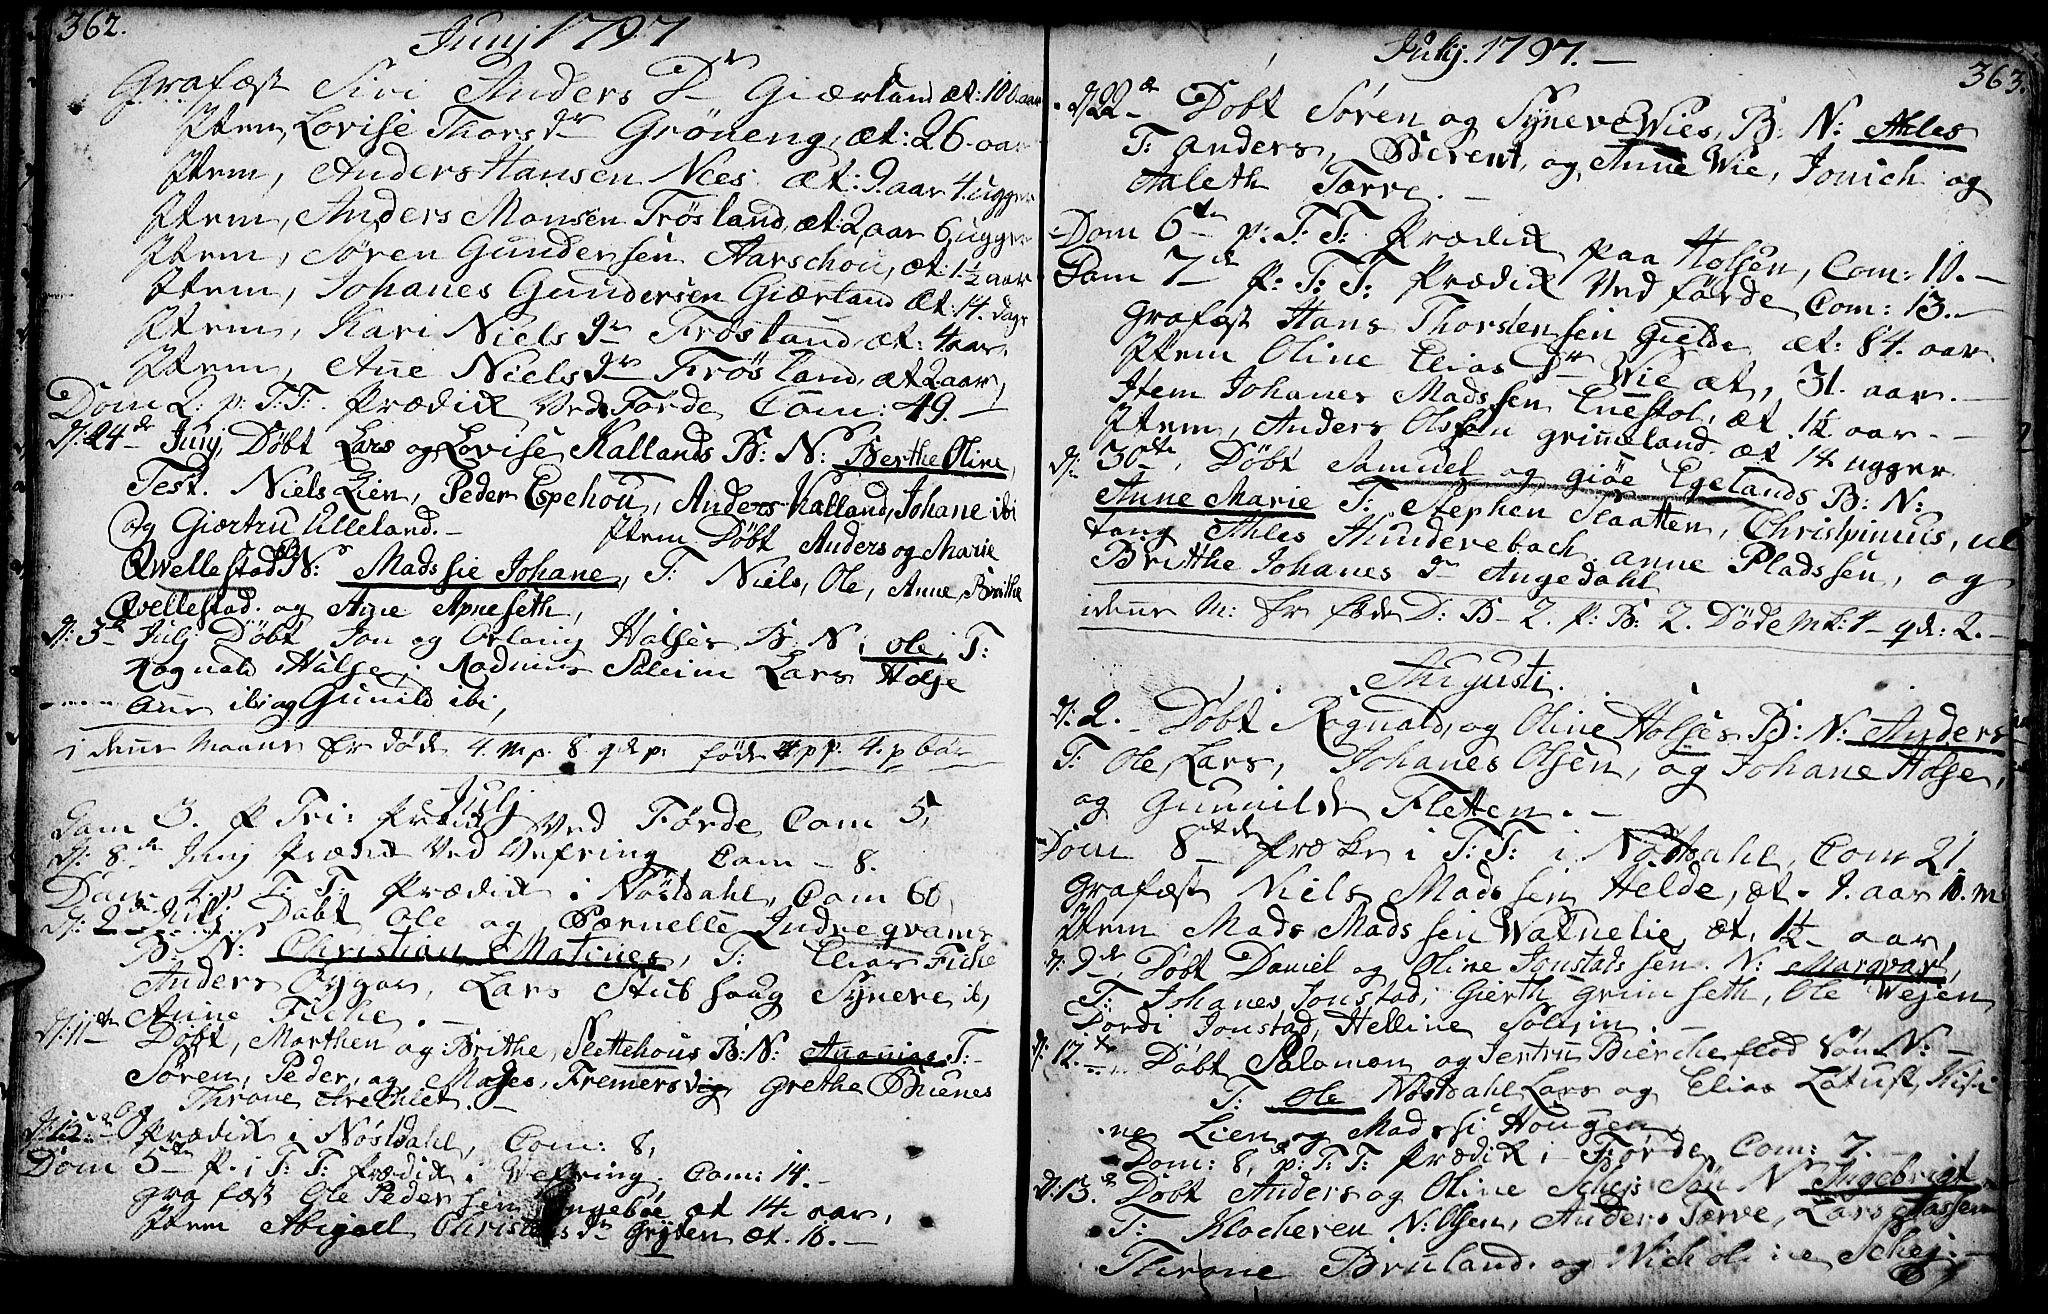 362.
Junij 1797
Grafæst Siri Anders Dr Giærland æt: 100 aar
Jtem, Lovise Thorsdr Gröneng, æt: 26 aar
Jtem, Anders Hansen Nees æt: 9 aar 4 ugger
Jtem, Anders Monsen Frösland, æt: 2 aar 6 ugger
Jtem, Sören Gundersen Aarschou, æt: 1½ aar
Jtem, Johanes Gundersen Giærland æt: 14 dage
Jtem, Kari Niels dr Frösland, æt: 4 aar.
Jtem, Ane Niels dr Frösland, æt 2 aar,
Dom 2: p: T: T: Prædik Ved Förde Com: 49.
d: 24de Junij Döbt Lars og Lovise Kallands B: N: Berthe Oline,
Test. Niels Lien, Peder Espehou, Anders Kalland, Johane ibi
og Giærtru Ulleland. – Jtem Döbt Anders og Marie
Qwellestad B: N: Madssie Johane, T: Niels, Ole, Anne, Berithe
Qvellestad. og Ane Apneseth,
d: 3de Julj Döbt Jon og Orlaug Halses B: N: Ole, T:
Rognald Halse, Rasmus Soleim Lars Halse
Ane ibi og Gunild ibi,
i dene Maane Er döde 4. mp. 8 qdp. föde 4 pp. 4. p bör
Julj
Dom 3. p Tri: Prædik Ved Förde Com 5,
d: 8de Junj Prædik Ved Vefring Com – 8.
Dom 4. p T: T: Prædik i Nöstdahl, Com 60,
d: 2de Julj Döbt Ole og Pernelle Indregrams
B: N: Christian Matines, T: Elias Fiche
Anders Lars Stubhoug Syneve ib,
Anne Fiche. –
d: 11te Döbt, Morthen og Brithe, Slettehous B: N: Ananias T:
Sören, Peder, og Mages, Fremersvig Grethe Bruenes
Throne
d: 12 Prædik i Nöstdahl, Com: 8,
Dom 5te p. i T: T: Prædik i Vefring. Com: 14. –
grafæst Ole Pedersen Engeböe æt 14 aar,
Jtem Abigael Christens dr Gryten æt. 16. –
Julij. 1797. –
363.
d 22de Döbt Sören og Syneve Wies, B: N: Ahles
T: Anders, og Anne Wie, Jonich og
Aaleth Tarve. –
Dom 6te p: T: T: Prædik paa Holsen, Com: 10. –
Dom 7de p: T: T: Prædik Ved Förde Com: 13. –
Grafæst Hans Thorstensen Gielde æt: 84. aar
Jtem Oline Elias Dr Wie æt, 31. aar. –
Jtem Johanes Madssen Enestol, æt 1¼ aar. –
Jtem, Anders Olssen grimeland. æt 14 ugger
d: 30te, Döbt Samuel og Giöe Egelands B: N:
Anne Marie T: Stephen Slaatten, Christpinius, ul
tang Ahles Hunderebach anne Pladssen, og
Britthe Johanes dr Angedahl
idene M: Er föde D: B – 2. p: B: 2. Döde mk: 1 – qde: 2. –
Augusti.
d: 2. – Döbt Rognald, og Oline Holses B: N: Anders
T: Ole, Lars, Johanes Olsen, og Johane Holse,
og Gunnilde Fletten. –
Dom 8de Præke i T: T: i Nöstdahl, Com 21
Grafæst Niels Madssen Helde, æt. 1. aar 10. m
Jtem Mads Madssen Watnelie, æt. 1½ aar,
d: 9de, Döbt Daniel og Oline Jonstadssen. N: Marqvar,
T: Johanes Jonstad, Gierth Grimseth, Ole Vejen
Dordi Jonstad, Helline Solem. –
d: 12te Döbt Salomon og Jertru Biercheflod Sön N: –
T: Ole Nöstdahl Lars og Elias Lötuft, Kisti
ne Lien og Madssi Hougen,
Dom: 8, p: T: T: Prædik i Förde Com: 7. –
d: 13de Döbt Anders og Oline Schejs Sön N Ingebrigt
T: Klocheren N: Olsen, Anders Tarve, Lars Aassen
Throne Bruland. og Nicholine Schej: –